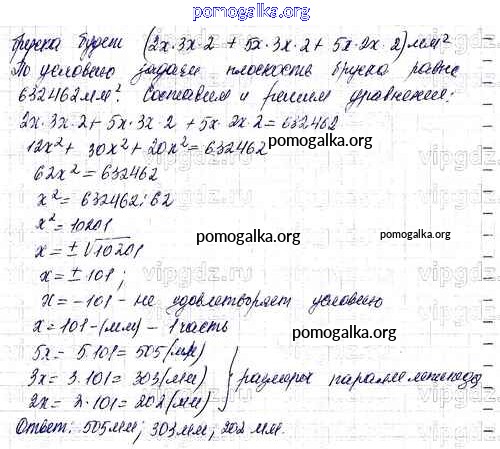 pomogalka.org
бруска будет (2x·3x·2 + 5x·3x·2 + 5x·2x·2) мм²
По условию задачи плоскость бруска равна
632462 мм². Составим и решим уравнение:
2x·3x·2 + 5x·3x·2 + 5x·2x·2 = 632462
12x² + 30x² + 20x² = 632462
62x² = 632462
pomogalka.org
x² = 632462:62
x² = 10201
pomogalka.org
pomogalka.org
x = ±√10201
x = ±101;
x = -101 - не удовлетворяет условию
x = 101 - (мм) - 1 часть
pomogalka.org
5x = 5·101 = 505 (мм)
3x = 3·101 = 303 (мм) } размеры параллелепипеда
2x = 2·101 = 202 (мм)
Ответ: 505 мм; 303 мм; 202 мм.
pomogalka.org